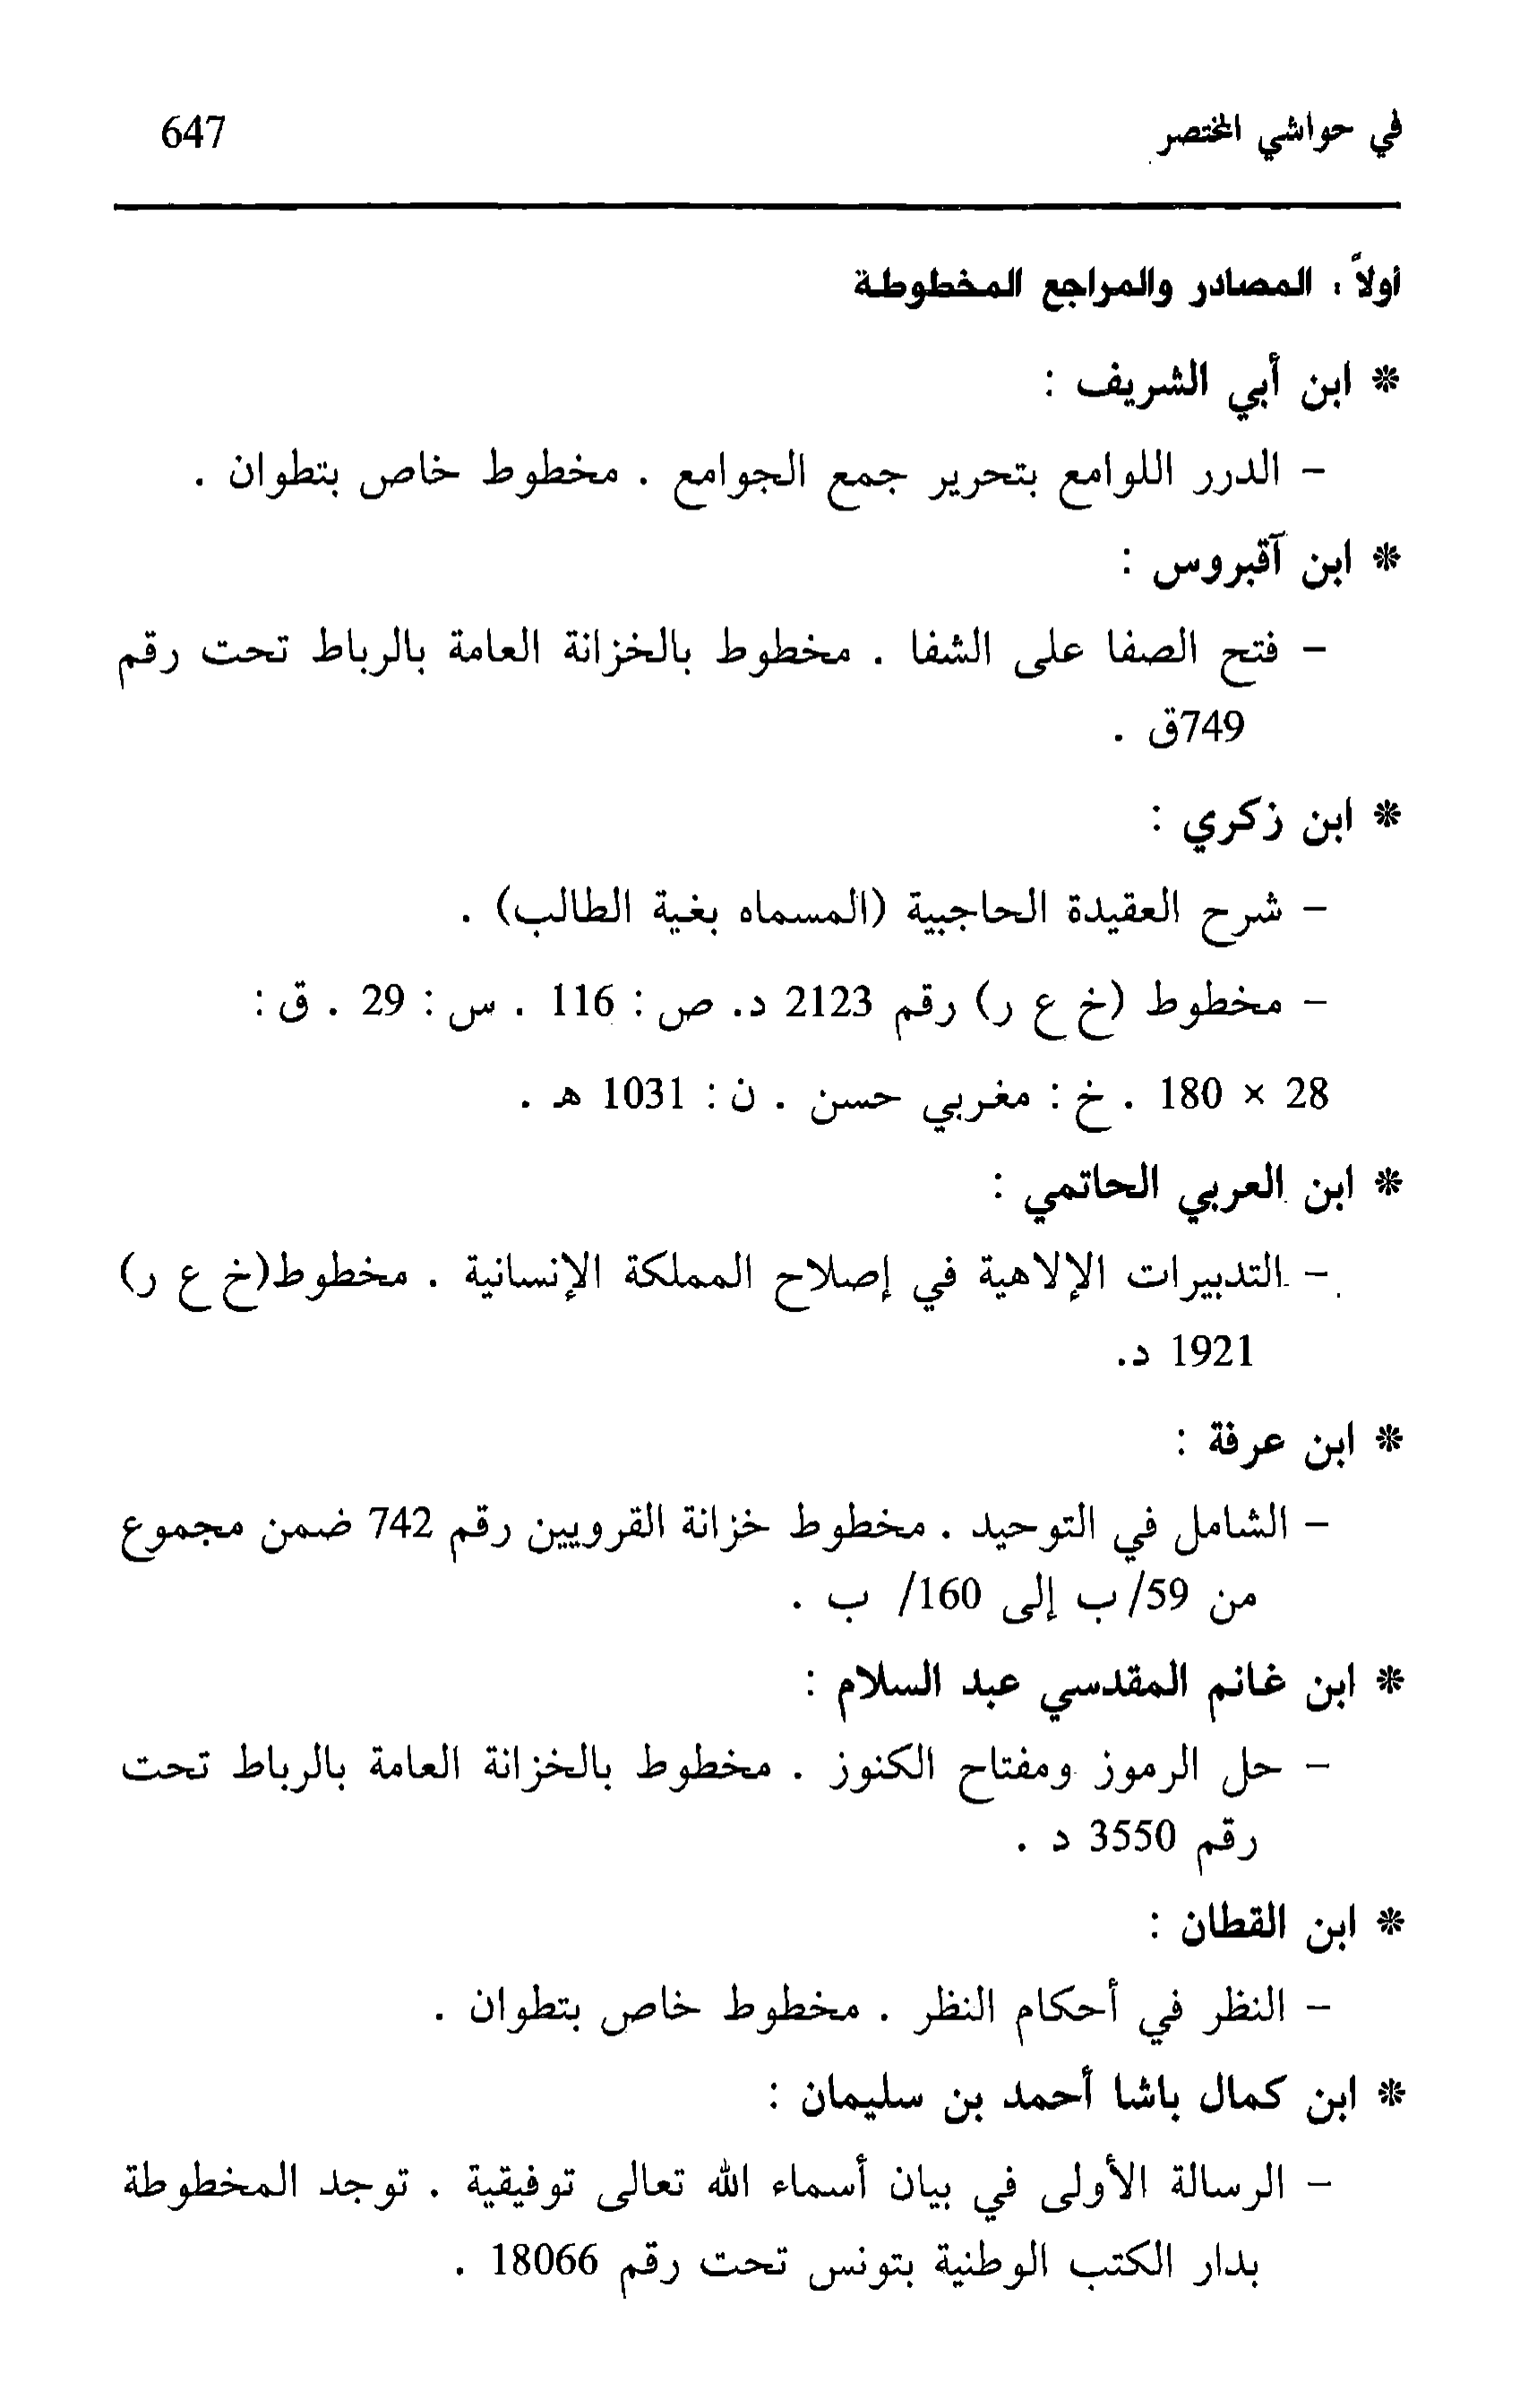 في حواشي المختصر 647
أولاً : المصادر والمراجع المخطوطة
* ابن أبي الشريف :
- الدرر اللوامع بتحرير جمع الجوامع . مخطوط خاص بتطوان .
* ابن آقبروس :
- فتح الصفا على الشفا . مخطوط بالخزانة العامة بالرباط تحت رقم
749ق .
* ابن زكري :
- شرح العقيدة الحاجبية (المسماه بغية الطالب) .
- مخطوط (خ ع ر) رقم 2123 د. ص : 116 . س : 29 . ق :
28 × 180 . خ : مغربي حسن . ن : 1031 هـ .
* ابن العربي الحاتمي :
- التدبيرات الإلاهية في إصلاح المملكة الإنسانية . مخطوط(خ ع ر)
1921 د.
* ابن عرفة :
- الشامل في التوحيد . مخطوط خزانة القرويين رقم 742 ضمن مجموع
من 59/ب إلى 160/ ب .
* ابن غانم المقدسي عبد السلام :
- حل الرموز ومفتاح الكنوز . مخطوط بالخزانة العامة بالرباط تحت
رقم 3550 د .
* ابن القطان :
- النظر في أحكام النظر . مخطوط خاص بتطوان .
* ابن كمال باشا أحمد بن سليمان :
- الرسالة الأولى في بيان أسماء الله تعالى توفيقية . توجد المخطوطة
بدار الكتب الوطنية بتونس تحت رقم 18066 .